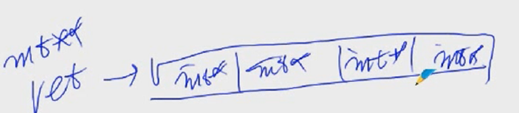 int**
ret → int* | int* | int* | int*